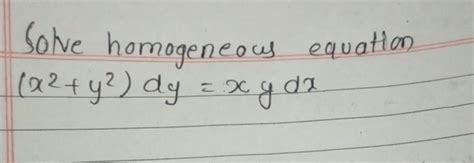 Solve homogeneous equation
(x²+y²) dy = x y dx